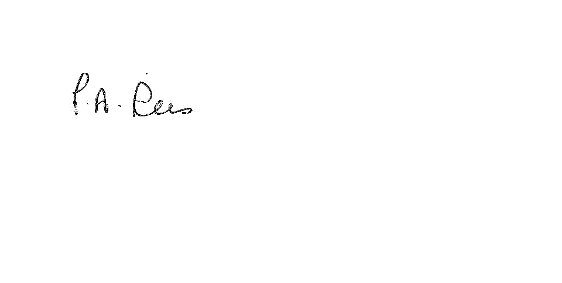 P.A. Rees